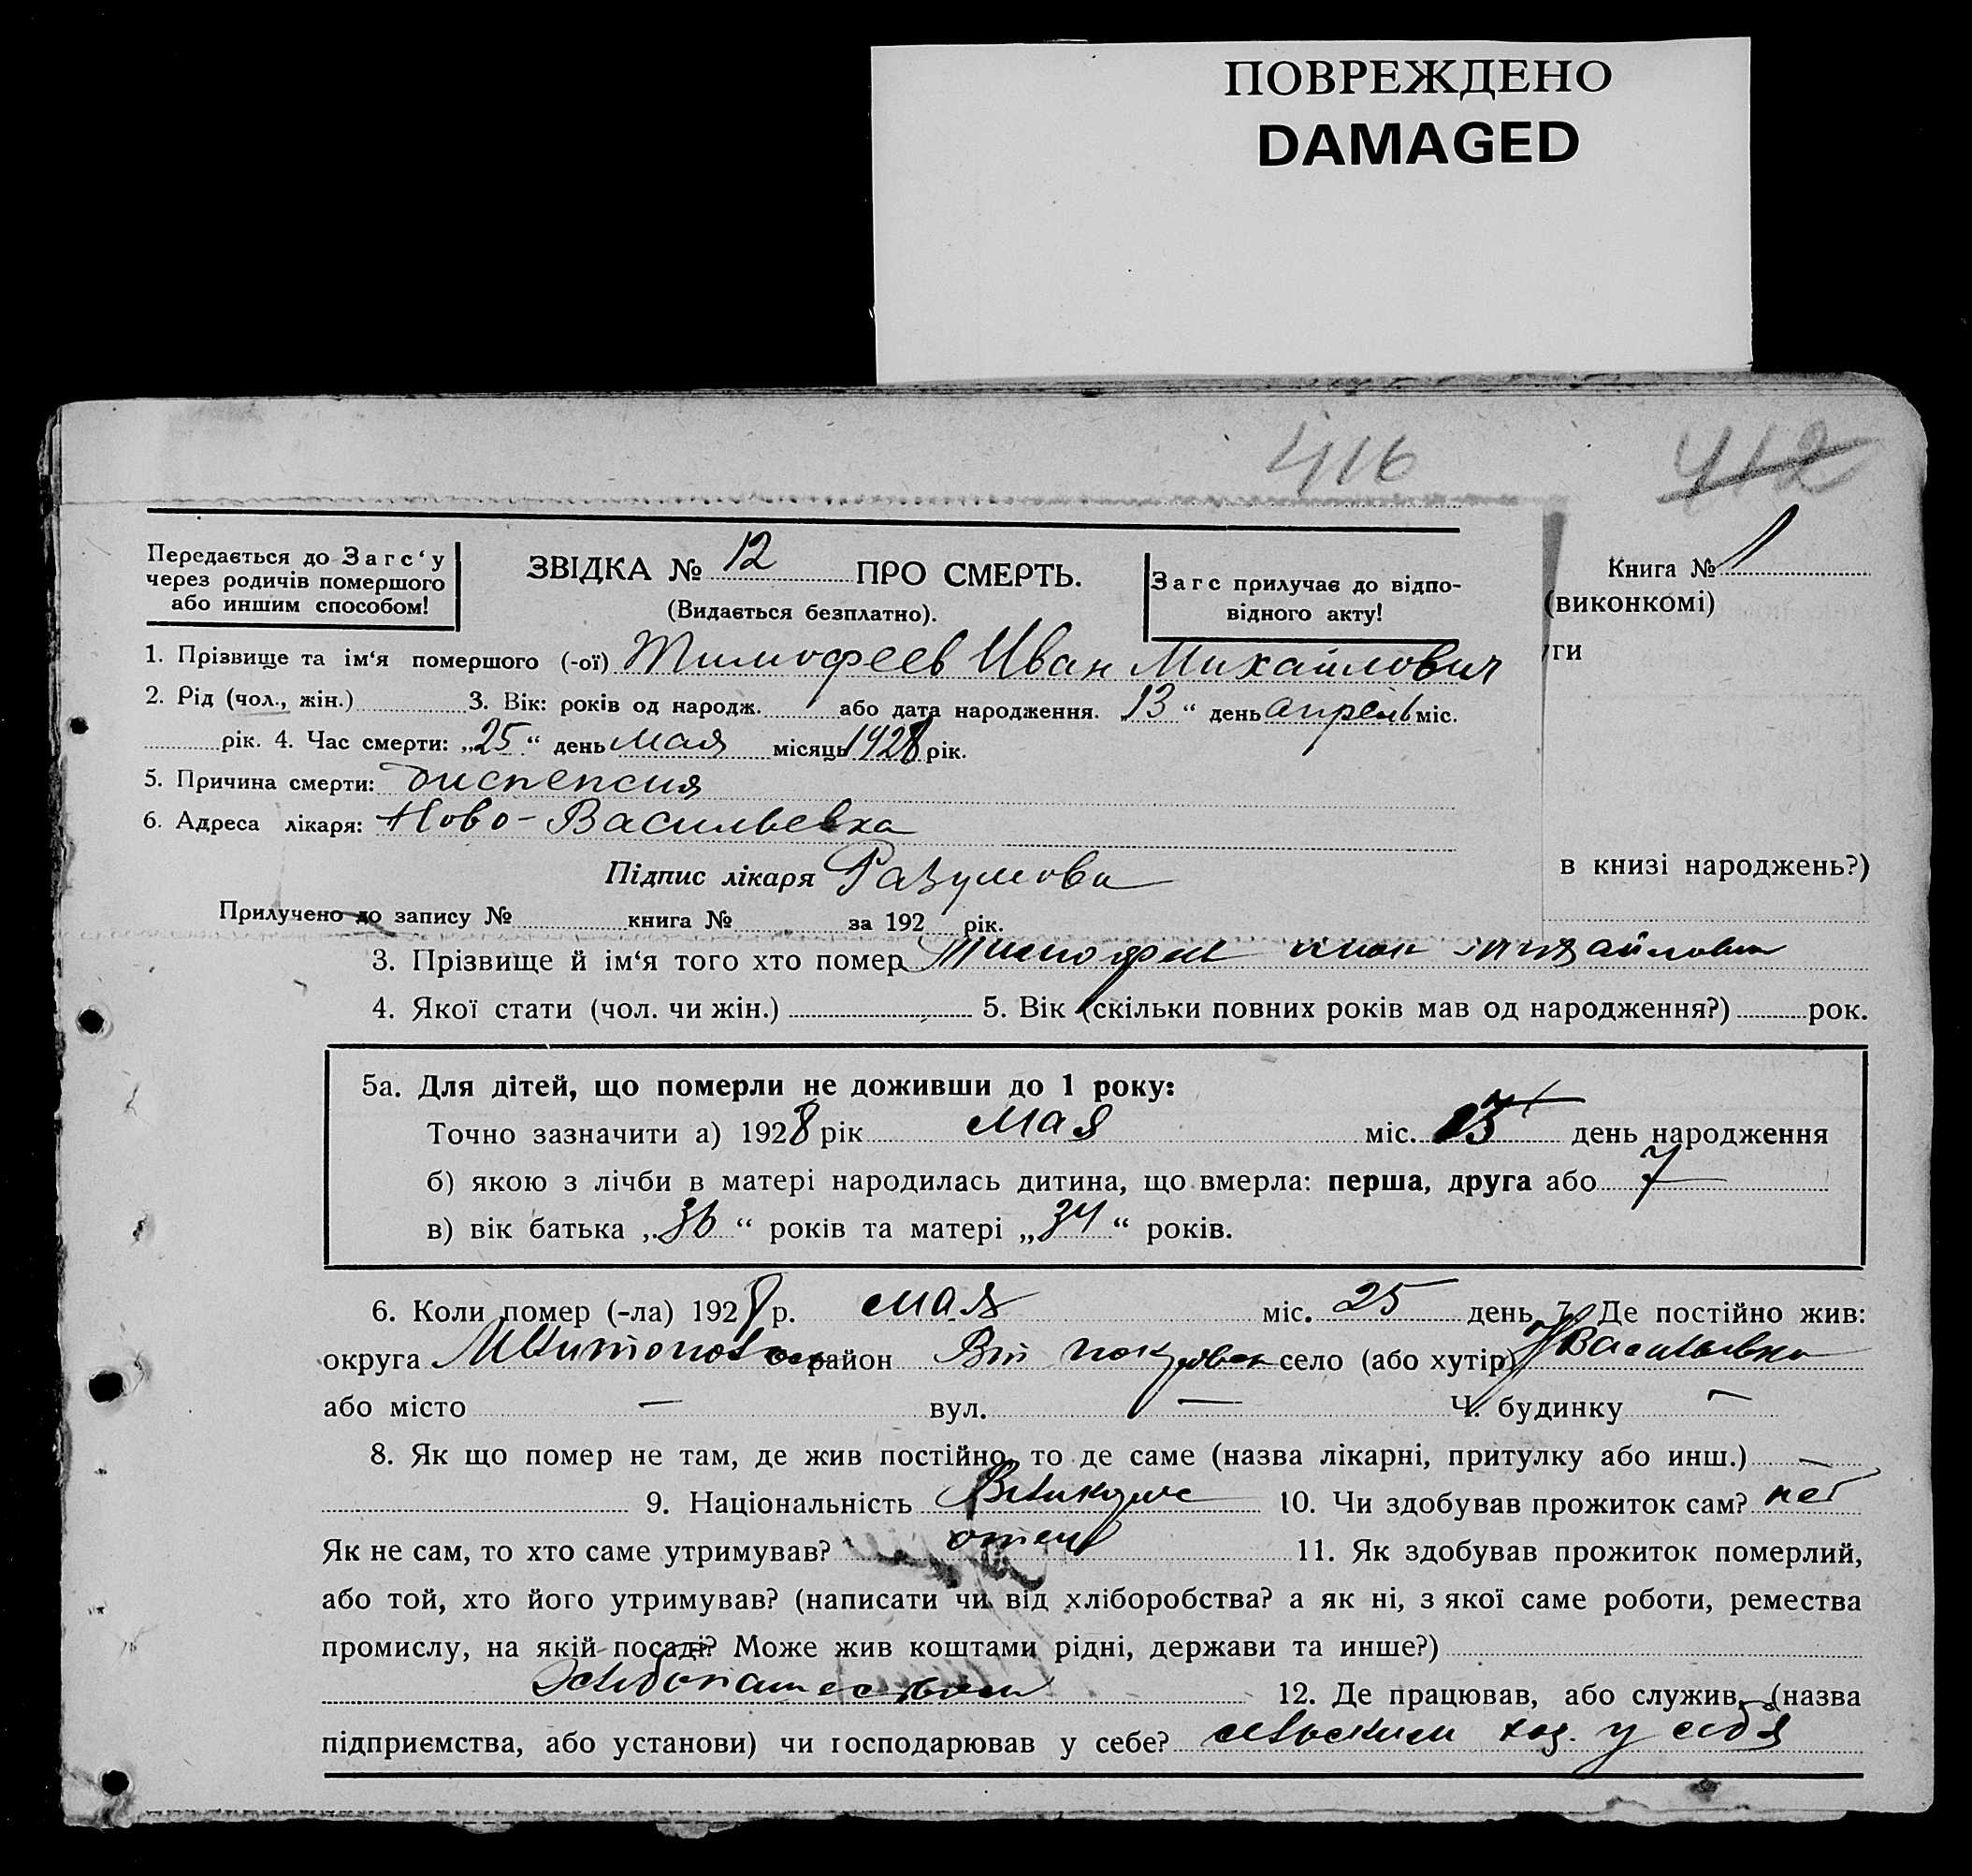 ПОВРЕЖДЕНО
DAMAGED
416
412
Передається до Загс‘у
через родичів помершого
або иншим способом!
ЗВІДКА № 12 ПРО СМЕРТЬ.
(Видається безплатно).
Загс прилучає до відпо-
відного акту!
Книга № 1
(виконкомі)
ги
1. Прізвище та ім‘я помершого (-ої) Тимофеев Иван Михайлович
2. Рід (чол., жін.) 3. Вік: років од народж. або дата народження. „13“ день апрель міс.
рік. 4. Час смерти: „25“ день мая місяць 1928 рік.
5. Причина смерти: диспепсия
6. Адреса лікаря: Ново-Васильевка
Підпис лікаря Разумова
в книзі народжень?)
Прилучено до запису № книга № за 192 рік.
3. Прізвище й ім‘я того хто помер Михайлович
4. Якої стати (чол. чи жін.) 5. Вік (скільки повних років мав од народження?) рок.
5а. Для дітей, що померли не доживши до 1 року:
Точно зазначити а) 1928 рік мая міс. день народження
б) якою з лічби в матері народилась дитина, що вмерла: перша, друга або 7
в) вік батька „36“ років та матері „34“ років.
6. Коли помер (-ла) 1928 р. мая міс. 25 день 7. Де постійно жив:
округа район село (або хутір) Н Васильевка
або місто — вул. — Ч. будинку —
8. Як що помер не там, де жив постійно, то де саме (назва лікарні, притулку або инш.) —
9. Національність 10. Чи здобував прожиток сам? нет
Як не сам, то хто саме утримував? отец 11. Як здобував прожиток померлий,
або той, хто його утримував? (написати чи від хліборобства? а як ні, з якої саме роботи, ремества
промислу, на якій посаді? Може жив коштами рідні, держави та инше?)
12. Де працював, або служив, (назва
підприємства, або установи) чи господарював у себе? сельским хоз. у себя